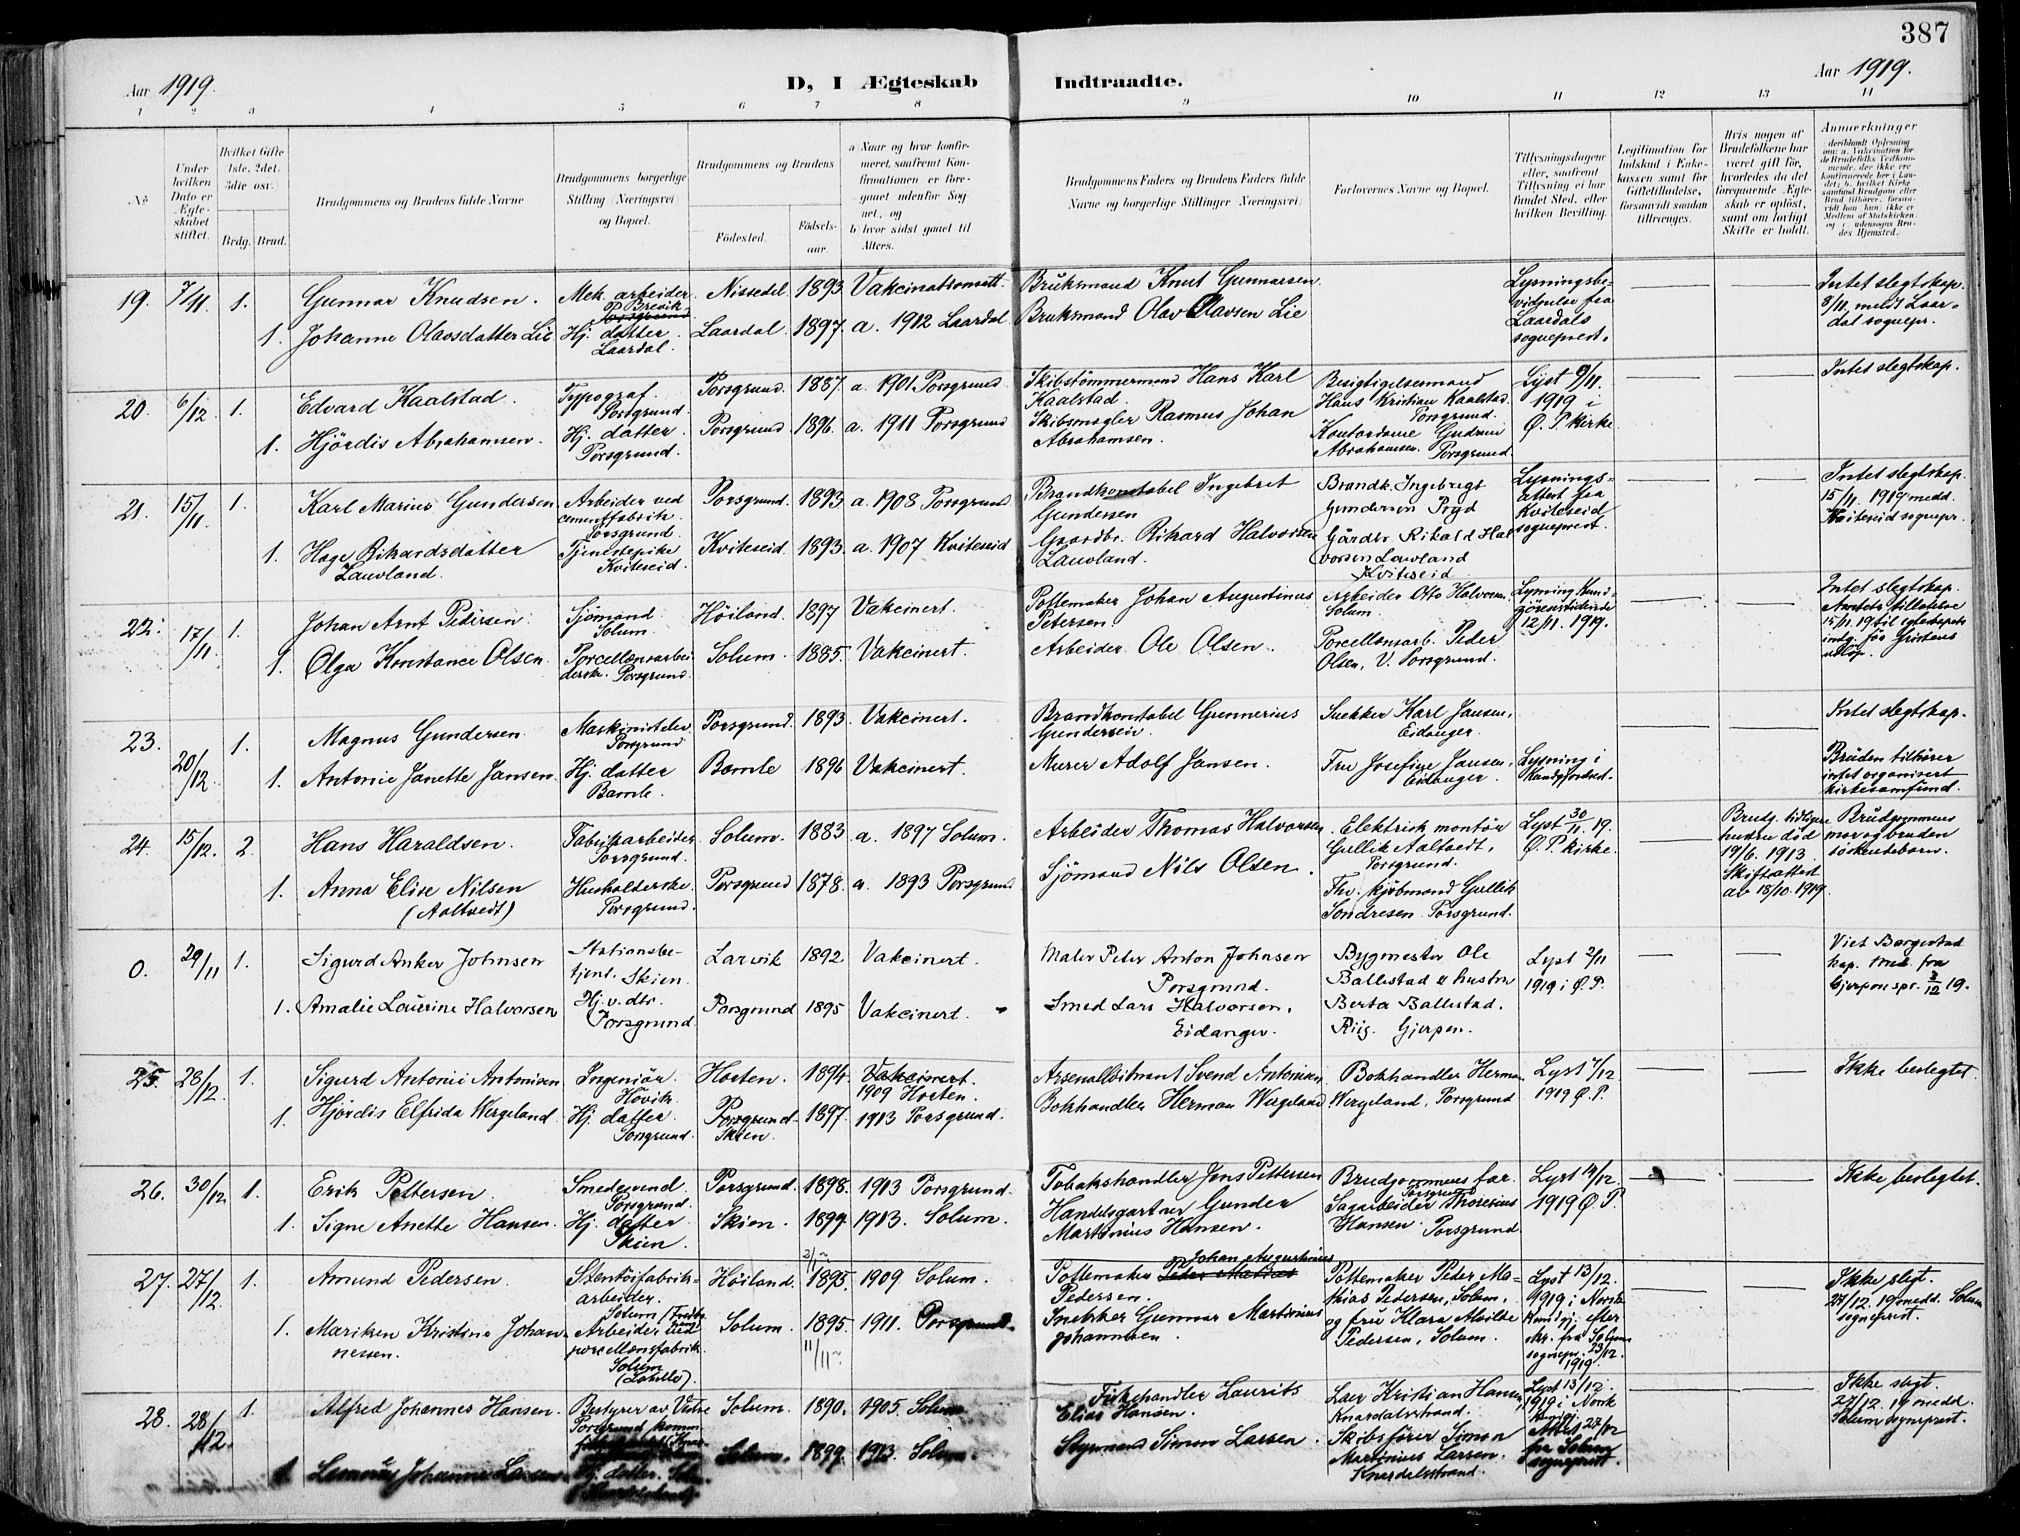 387
Aar 1919.
D, I Ægteskab Indtraadte.
Aar 1919.
1 2 3 4 5 6 7 8 9 10 11 12 13 14
No
Under hvilken Dato er Ægteskabet stiftet.
Hvilket Gifte 1ste, 2det, 3die osv.
Brdg. Brud.
Brudgommens og Brudens fulde Navne
Brudgommens borgerlige Stilling (Næringsvei) og Bopæl.
Brudgommens og Brudens
Fødested. Fødselsaar.
a Naar og hvor konfirmeret, saafremt Konfirmationen er foregaaet udenfor Sognet, og
b hvor sidst gaaet til Alters.
Brudgommens Faders og Brudens Faders fulde Navne og borgerlige Stillinger (Næringsvei).
Forlovernes Navne og Bopæl.
Tillysningsdagene eller, saafremt Tillysning ei har fundet Sted, efter hvilken Bevilling.
Legitimation for Indskud i Enkekassen samt for Giftetilladelse, forsaavidt saadan tiltrænges.
Hvis nogen af Brudefolkene har været gift før, hvorledes da det foregaaende Ægteskab er opløst, samt om lovligt Skifte er holdt.
Anmerkninger
19. 7/11 1. Gunnar Knudsen. Mek. arbeider Brevik Nissedel 1893 Vakcinationsatt. Bruksmand Knut Gunnarsen
1. Johanne Olavsdatter Lie Hj. datter Laardal. Laardal 1897. a. 1912 Laardal Bruksmand Olav Olavsen Lie
Lysningsbevidnelse fra Laardals sogneprest.
Intet slegtskap. 8/11 meldt Laardal sognepr.
20. 6/12 1. Edvard Kaalstad. Typograf. Porsgrund. Porsgrund. 1887. a. 1901. Porsgrund Skibstømmermand Hans Karl Kaalstad.
1. Hjördis Abrahamsen. Hj. datter. Porsgrund. Porsgrund. 1896. a. 1911 Porsgrund Skibsmægler Rasmus Johan Abrahamsen.
Besigtigelsesmand Hans Kristian Kaalstad. Porsgrund.
Kontordame Gudrun Abrahamsen. Porsgrund.
Lyst 9/11. 1919 i Ø. P. kirke
Intet slegtskap.
21. 15/11 1. Karl Marius Gundersen Arbeider ved cementfabrik. Porsgrund. Porsgrund. 1893 a. 1908 Porsgrund Brandkonstabel Ingebret Gundersen
1. Hage Rikardsdatter Lauvland. Tjenestepike Kviteseid. Kviteseid. 1893. a. 1907 Kviteseid Gaardbr. Rikard Halvorsen Lauvland.
Brandk. Ingebrigt Gunderson Pryd
Gårdbr. Rikald Halvorsen Lauvland Kviteseid
Lysningsattest fra Kviteseid sogneprest.
Intet slegtskap. 15/11. 1919 medd. Kviteseid sognepr.
22. 17/11 1. Johan Arnt Pedersen Sjömand. Solum Höiland. 1897 Vakcinert. Pottemaker Johan Augustinus Petersen
1. Olga Konstance Olsen Porcellænsarbeiderske. Porsgrund. Solum. 1885. Vakcinert. Arbeider Ole Olsen.
Arbeider Otto Halvorsen. Solum.
Porcellænsarb. Peder Olsen, V. Porsgrund.
Lysning Kundgörelsestidende 12/11. 1919.
Intet slegtskap. Amtets tilladelse 15/11. 19 til egteskapets indg. før fristens utløp.
23. 20/12 1. Magnus Gundersen. Maskinistelev Porsgrund Porsgrund. 1893. Vakcinert. Brandkonstabel Gunnerius Gundersen.
1. Antonie Janette Jansen. Hj. datter Bamle. Bamle 1896 Vakcinert. Murer Adolf Jansen.
Snekker Karl Jansen, Eidanger.
Fru Josefine Jansen, Eidanger.
Lysning i
Intet slegtskap.
Bruden tilhører intet organisert kirkesamfund.
24. 15/12. 2. Hans Haraldsen. Fabrikarbeider Porsgrund. Solum. 1883 a. 1897 Solum. Arbeider Thomas Halvorsen.
1. Anna Elise Nilsen (Aaltvedt) Husholderske. Porsgrund. Porsgrund 1878. a. 1893 Porsgrund Sjömand Nils Olsen.
Elektrisk montør Gullik Aaltvedt, Porsgrund.
Fhv. kjøbmand Gullik Sondresen Porsgrund.
Lyst 30/11. 19. Ø. P. kirke.
Brudg. tidligere hustru død 19/6. 1913. Skifteattest av 18/10. 1919.
Brudgommens mor og bruden søskendebarn.
0. 29/11 1. Sigurd Anker Johnsen Stationsbetjent. Skien. Larvik 1892 Vakcinert. Maler Peter Anton Johnsen Porsgrund.
1. Amalie Lovrine Halvorsen Hj. v. dtr. Porsgrund Porsgrund 1895 Vakcinert. Smed Lars Halvorsen. Eidanger.
Bygmester Ole Ballestad & hustru Berta Ballestad. Riig. Gjerpen.
Lyst 2/11 1919 i Ø. P.
Viet Borgestad kap. Med. fra Gjerpen spr. 3/12 19.
25. 28/12 1. Sigurd Antonie Antonisen Ingeniør. Hövik. Horten. 1894. Vakcinert. 1909 Horten. Svend Antonisen
1. Hjördis Elfrida Wergeland. Hj. datter. Porsgrund. Porsgrund. Skien. 1897. 1913 Porsgrund. Bokhandler Herman Wergeland
Bokhandler Herman Wergeland, Porsgrund
Lyst 7/12 1919 Ø. P.
Ikke beslegtet
26. 30/12. 1. Erik Pettersen. Smedesvend. Porsgrund. Porsgrund. 1898. 1913 Porsgrund. Tobakshandler Jens Pettersen
1. Signe Anette Hansen. Hj. datter Skien. Skien. 1899. 1913. Solum. Handelsgartner Gunder Martinius Hansen.
Brudgommens far. Porsgrund
Sagarbeider Thoresius Hansen. Porsgrund
Lyst 14/12 1919 Ø. P.
Ikke beslegtet.
27. 27/12. 1. Amund Pedersen. Stentöifabrikarbeider. Solum Höiland. 1895. 1909 Solum. Pottemaker Johan Augustinius Pedersen.
1. Mariken Kristine Johannessen. Arbeider ved porcellænsfabrik. Solum Solum. 1895. 11/11 1911. Porsgrund. Snekker Gunnar Martinius Johannesen.
Pottemaker Peder Mathias Pedersen, Solum, og fru Klara Alvilde Pedersen, Solum.
Lyst 13/12. 1919 i Norsk Kundgj. efter Atr. fra Solum sognepr. 23/12. 1919.
Ikke slegt. 27/12. 19 medd. Solum sogneprest.
28. 28/12. 1. Alfred Johannes Hansen. Bestyrer av Vestre Porsgrund komm. Solum. 1890. 1905. Solum. Fiskehandler Laurits Elias Hansen.
1. Johanne Larsen. Hj. datter. Solum. 1899. 1913. Solum. Styrmand Simon Larsen.
Kristian Hansen, Knardalsstrand.
Skibsfører Simon Martinius Larsen. Knardalsstrand.
Lyst 13/12 1919 i Norsk Kundgj. Attest 27/12 fra Solum sogneprest.
Ikke slegt. 27/12. 19 medd. Solum sogneprest.